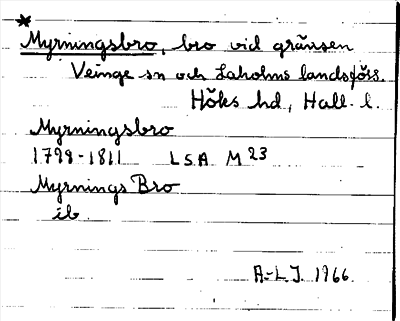 Myrningsbro, bro vid gränsen
Veinge sn och Laholms landsförs.
Höks hd, Hall. l.
Myrningsbro
1798-1811 LSA M 23
Myrnings Bro
ib.
A.-L.J. 1966